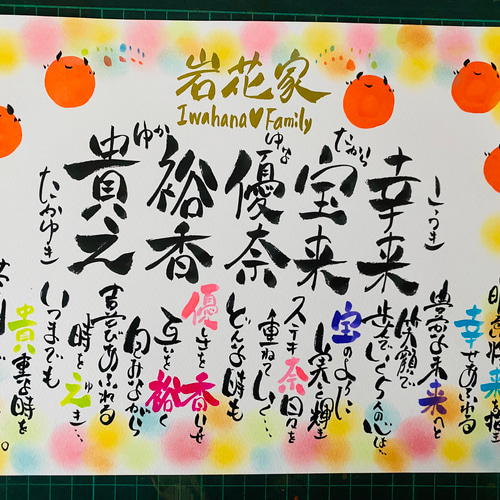 岩花家
Iwahana♥Family
こうき
幸来
たから
宝来
ゆな
優奈
ゆか
裕香
たかゆき
貴之
幸せあふれる
豊かな未来へと
笑顔で
歩んでいく
宝のように
実り輝き
ステキ奈日々を
重ねていく…
どんな時も
優しさを香らせ
互いを裕く
包みながら
喜びあふれる
時を之き…
ゆ
いつまでも
貴重な時を